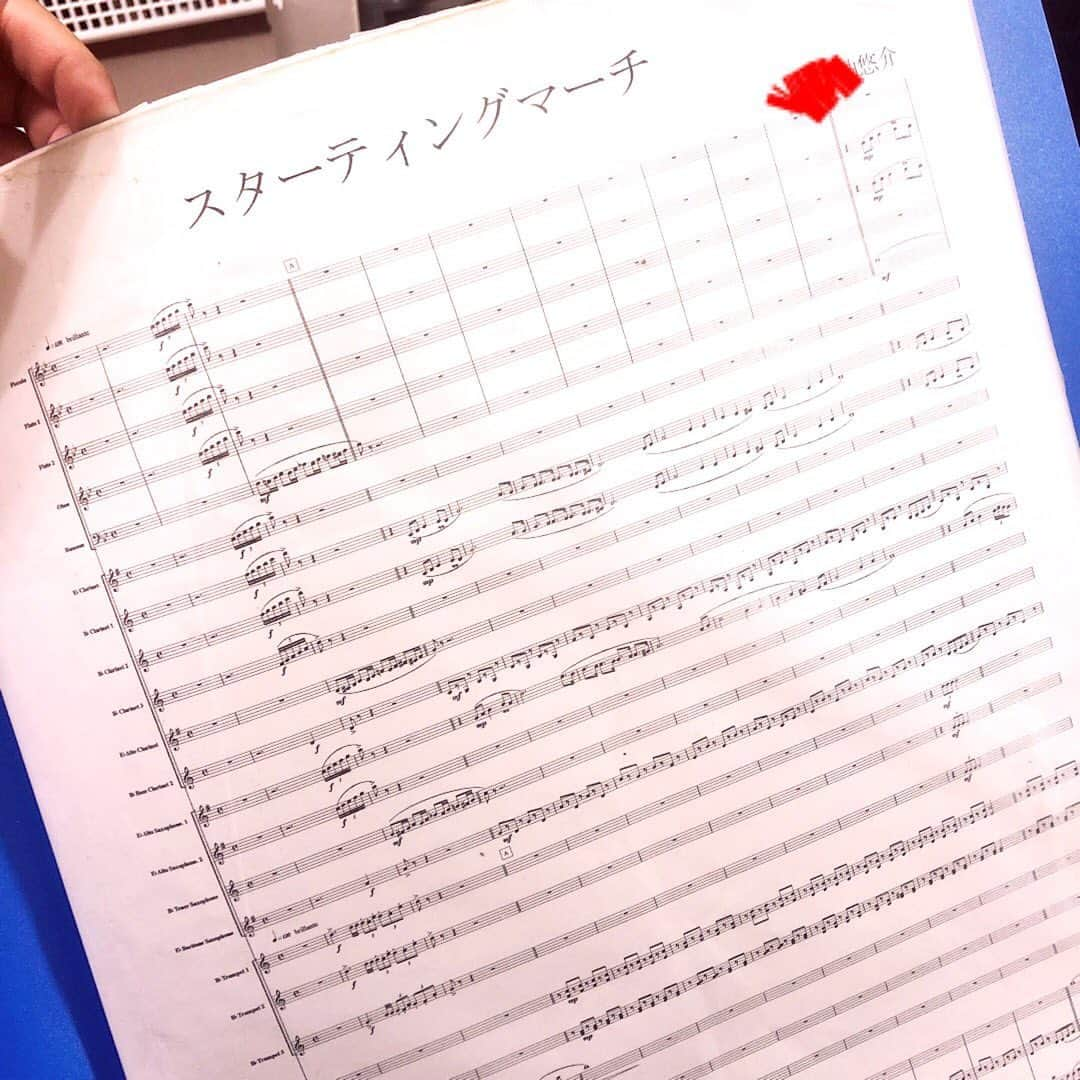 スターティングマーチ
悠介
brillante
A
Piccolo
Flute 1
f
Flute 2
f
Oboe
f
Bassoon
f
E♭ Clarinet
f
B♭ Clarinet 1
f
mp
B♭ Clarinet 2
f
mp
B♭ Clarinet 3
f
E♭ Alto Clarinet
mp
B♭ Bass Clarinet 2
f
mp
E♭ Alto Saxophone 1
f
E♭ Alto Saxophone 2
f
mf
B♭ Tenor Saxophone
mf
A
E♭ Baritone Saxophone
f
brillante
B♭ Trumpet 1
f
B♭ Trumpet 2
f
B♭ Trumpet 3
f
mp
mp